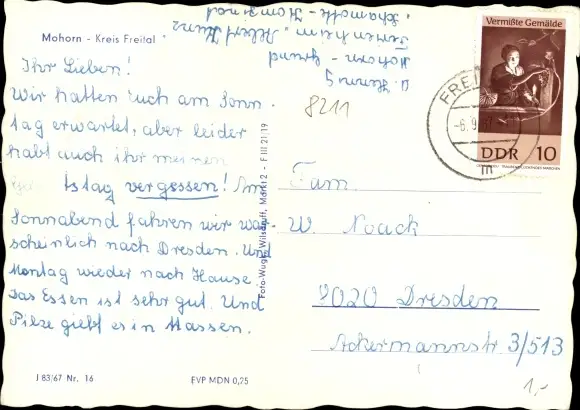 Mohorn - Kreis Freital
Ihr Lieben!
Wir hatten Euch am Sonn-
tag erwartet, aber leider
habt auch ihr meinen
tstag vergessen! Am
Sonnabend fahren wir wahr-
scheinlich nach Dresden. Und
Montag wieder nach Hause.
Das Essen ist sehr gut. Und
Pilze giebt es in Massen.
J 83/67 Nr. 16
EVP MDN 0,25
Foto-Wugk, Wilsdruff, Markt 2 - F III 21/19
Ferienheim "Albert Kunz
Mohorn - Grund
8211
Vermißte Gemälde
DDR 10
FREI
-6.9.
m
Fam.
W. Noack
8020 Dresden
Ackermannstr 3/513
1,-